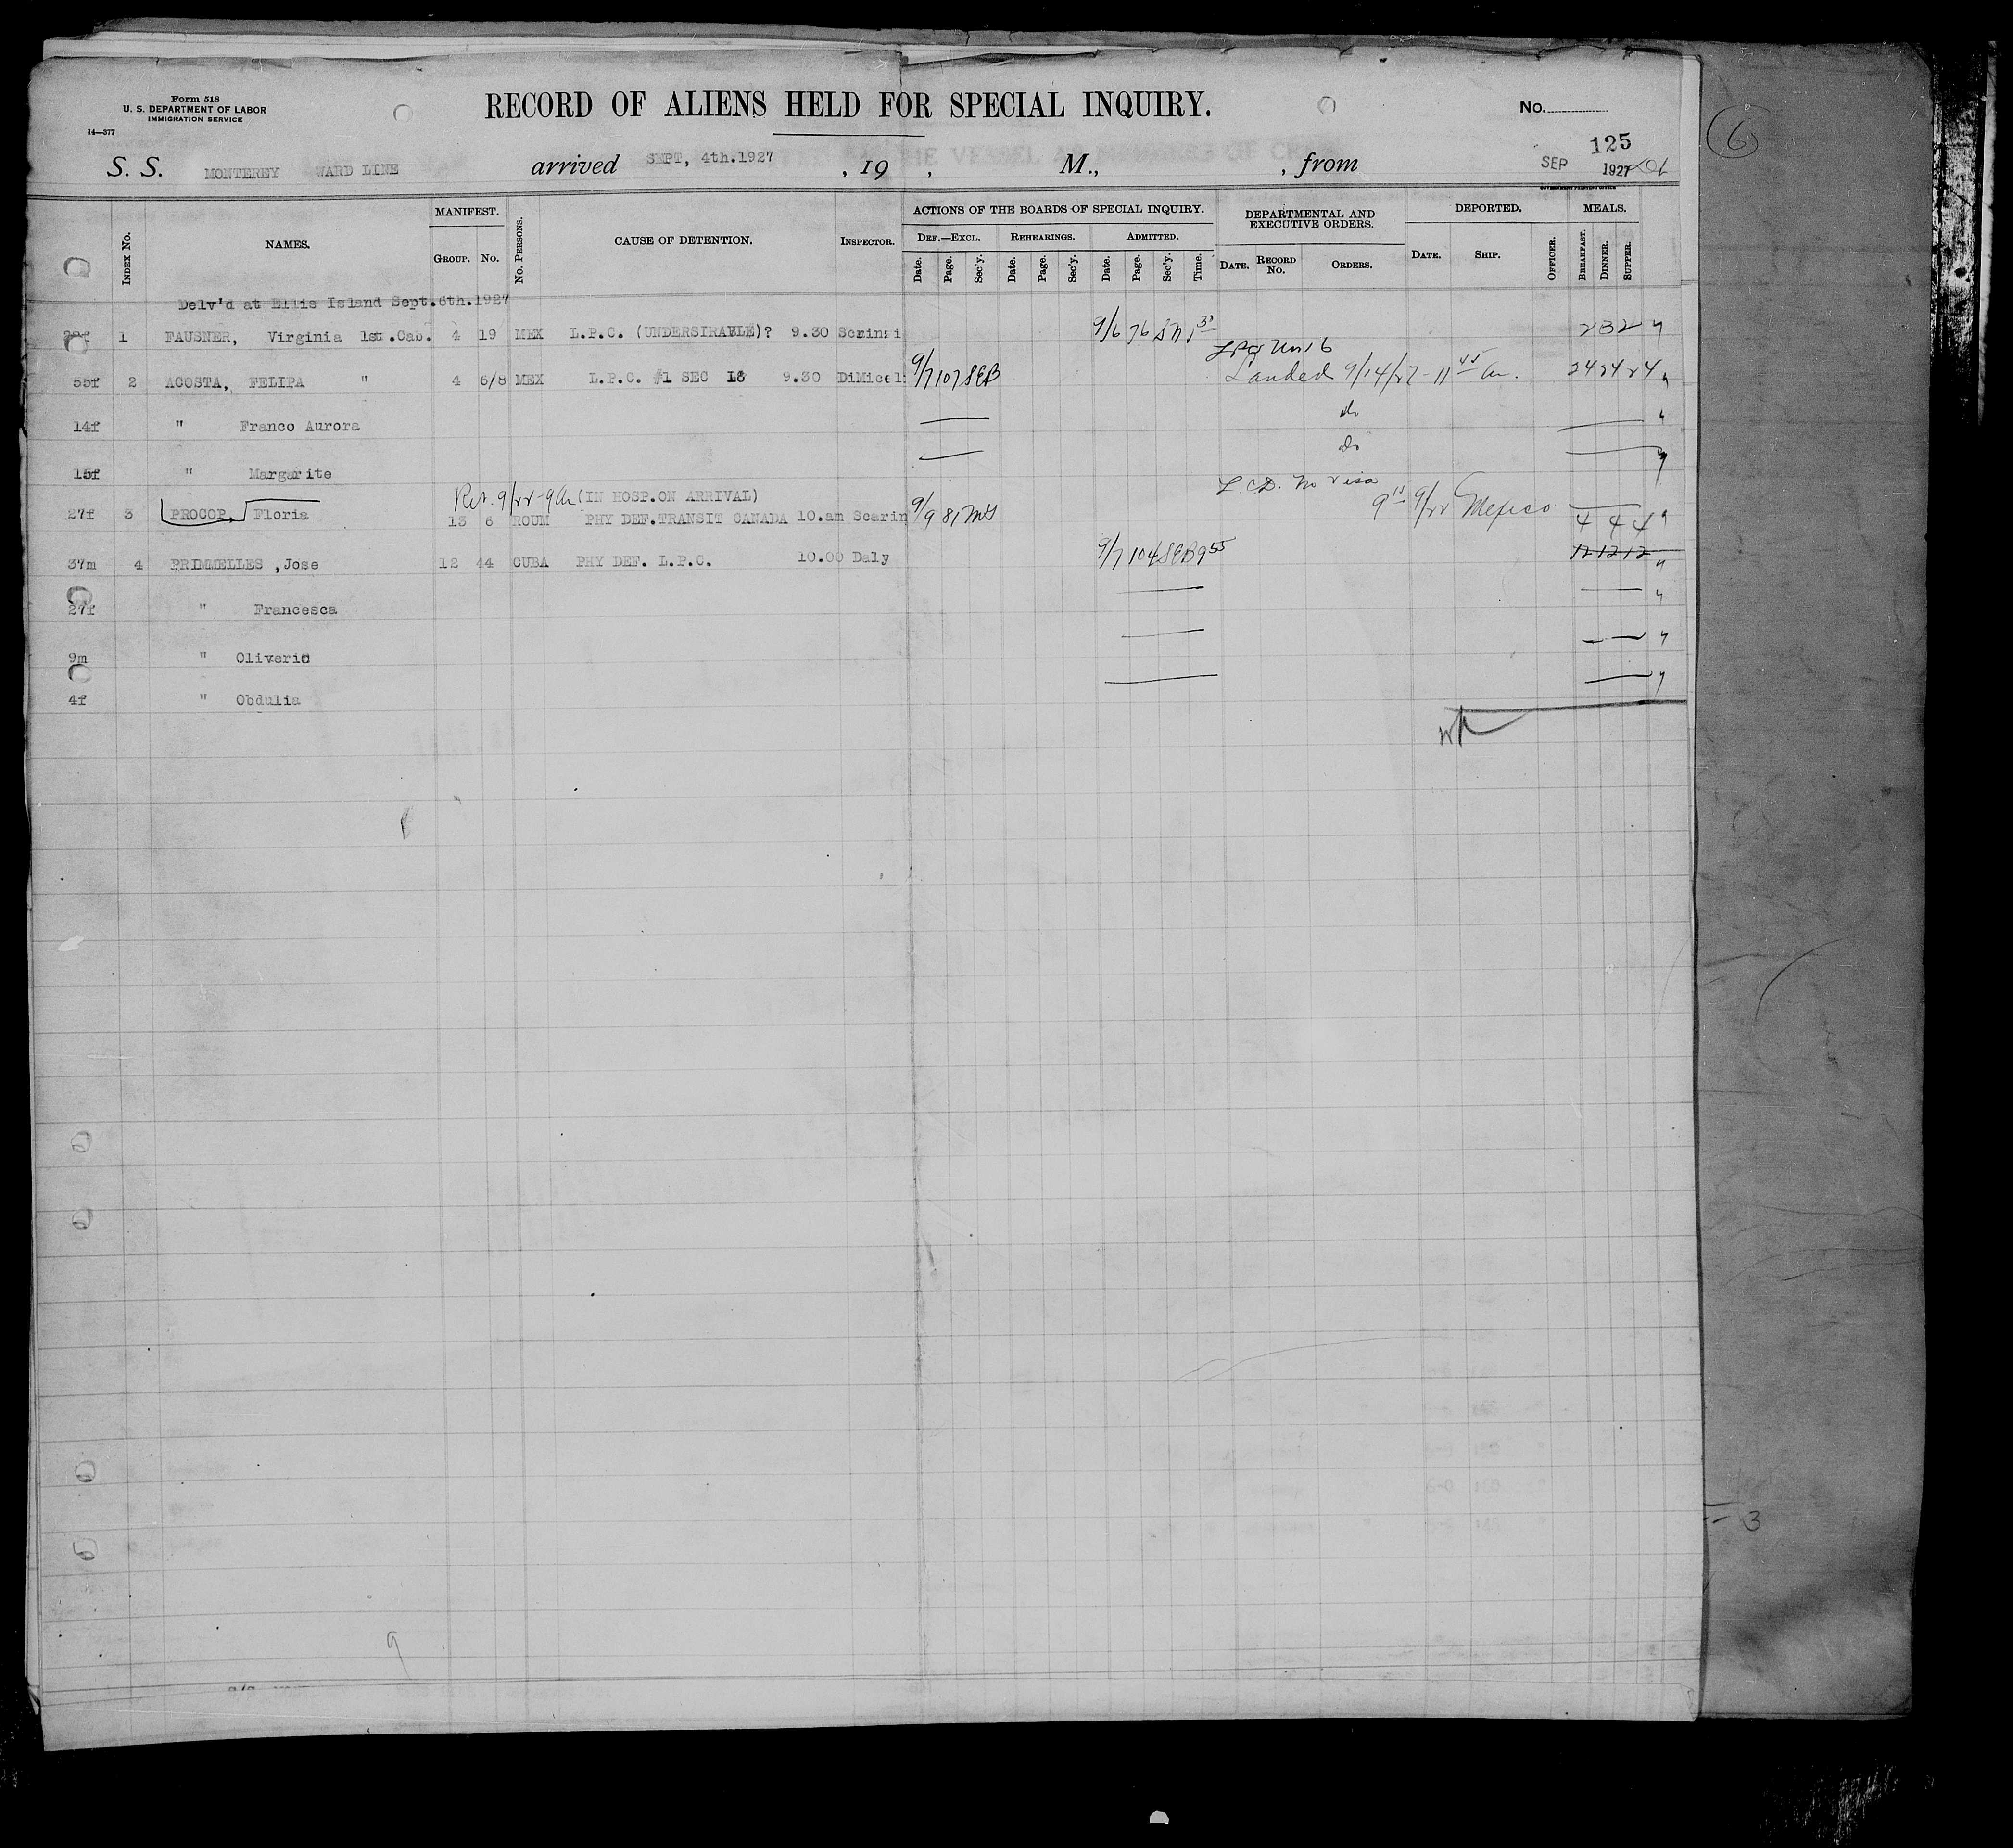 Form 518
U. S. DEPARTMENT OF LABOR
IMMIGRATION SERVICE
14—377
RECORD OF ALIENS HELD FOR SPECIAL INQUIRY.
No.
125
SEP 1927
(6)
S. S. MONTEREY WARD LINE arrived SEPT, 4th.1927 , 19 , M., , from
INDEX No. NAMES. MANIFEST. GROUP. No. No. PERSONS. CAUSE OF DETENTION. INSPECTOR. ACTIONS OF THE BOARDS OF SPECIAL INQUIRY. DEF.—EXCL. Date. Page. Sec'y. REHEARINGS. Date. Page. Sec'y. ADMITTED. Date. Page. Sec'y. Time. DEPARTMENTAL AND EXECUTIVE ORDERS. DATE. RECORD No. ORDERS. DEPORTED. DATE. SHIP. OFFICER. MEALS. BREAKFAST. DINNER. SUPPER.
Delv'd at Ellis Island Sept.6th.1927
1 FAUSNER, Virginia 1st.Cab. 4 19 MEX L.P.C. (UNDERSIRAVLE)? 9.30 9/6 76 2 3 2
55f 2 ACOSTA, FELIPA " 4 6/8 MEX L.P.C. #1 SEC 18 9.30 DiMicel 9/7 107 SEB Landed 9/14/27 - 11 45 am. 24 24 24
14f " Franco Aurora do
15f " Margarite do
Ret. 9/22 - 9 am (IN HOSP.ON ARRIVAL) No visa
27f 3 PROCOP, Floria 13 6 ROUM PHY DEF.TRANSIT CANADA 10.am Scarin 9/9 81 9 15 9/22 Mexico 4 4 4
37m 4 PRIMMELLES ,Jose 12 44 CUBA PHY DEF. L.P.C. 10.00 Daly 9/7 104 SEB 9 55 12 12 12
27f " Francesca
9m " Oliverio
4f " Obdulia
3
9